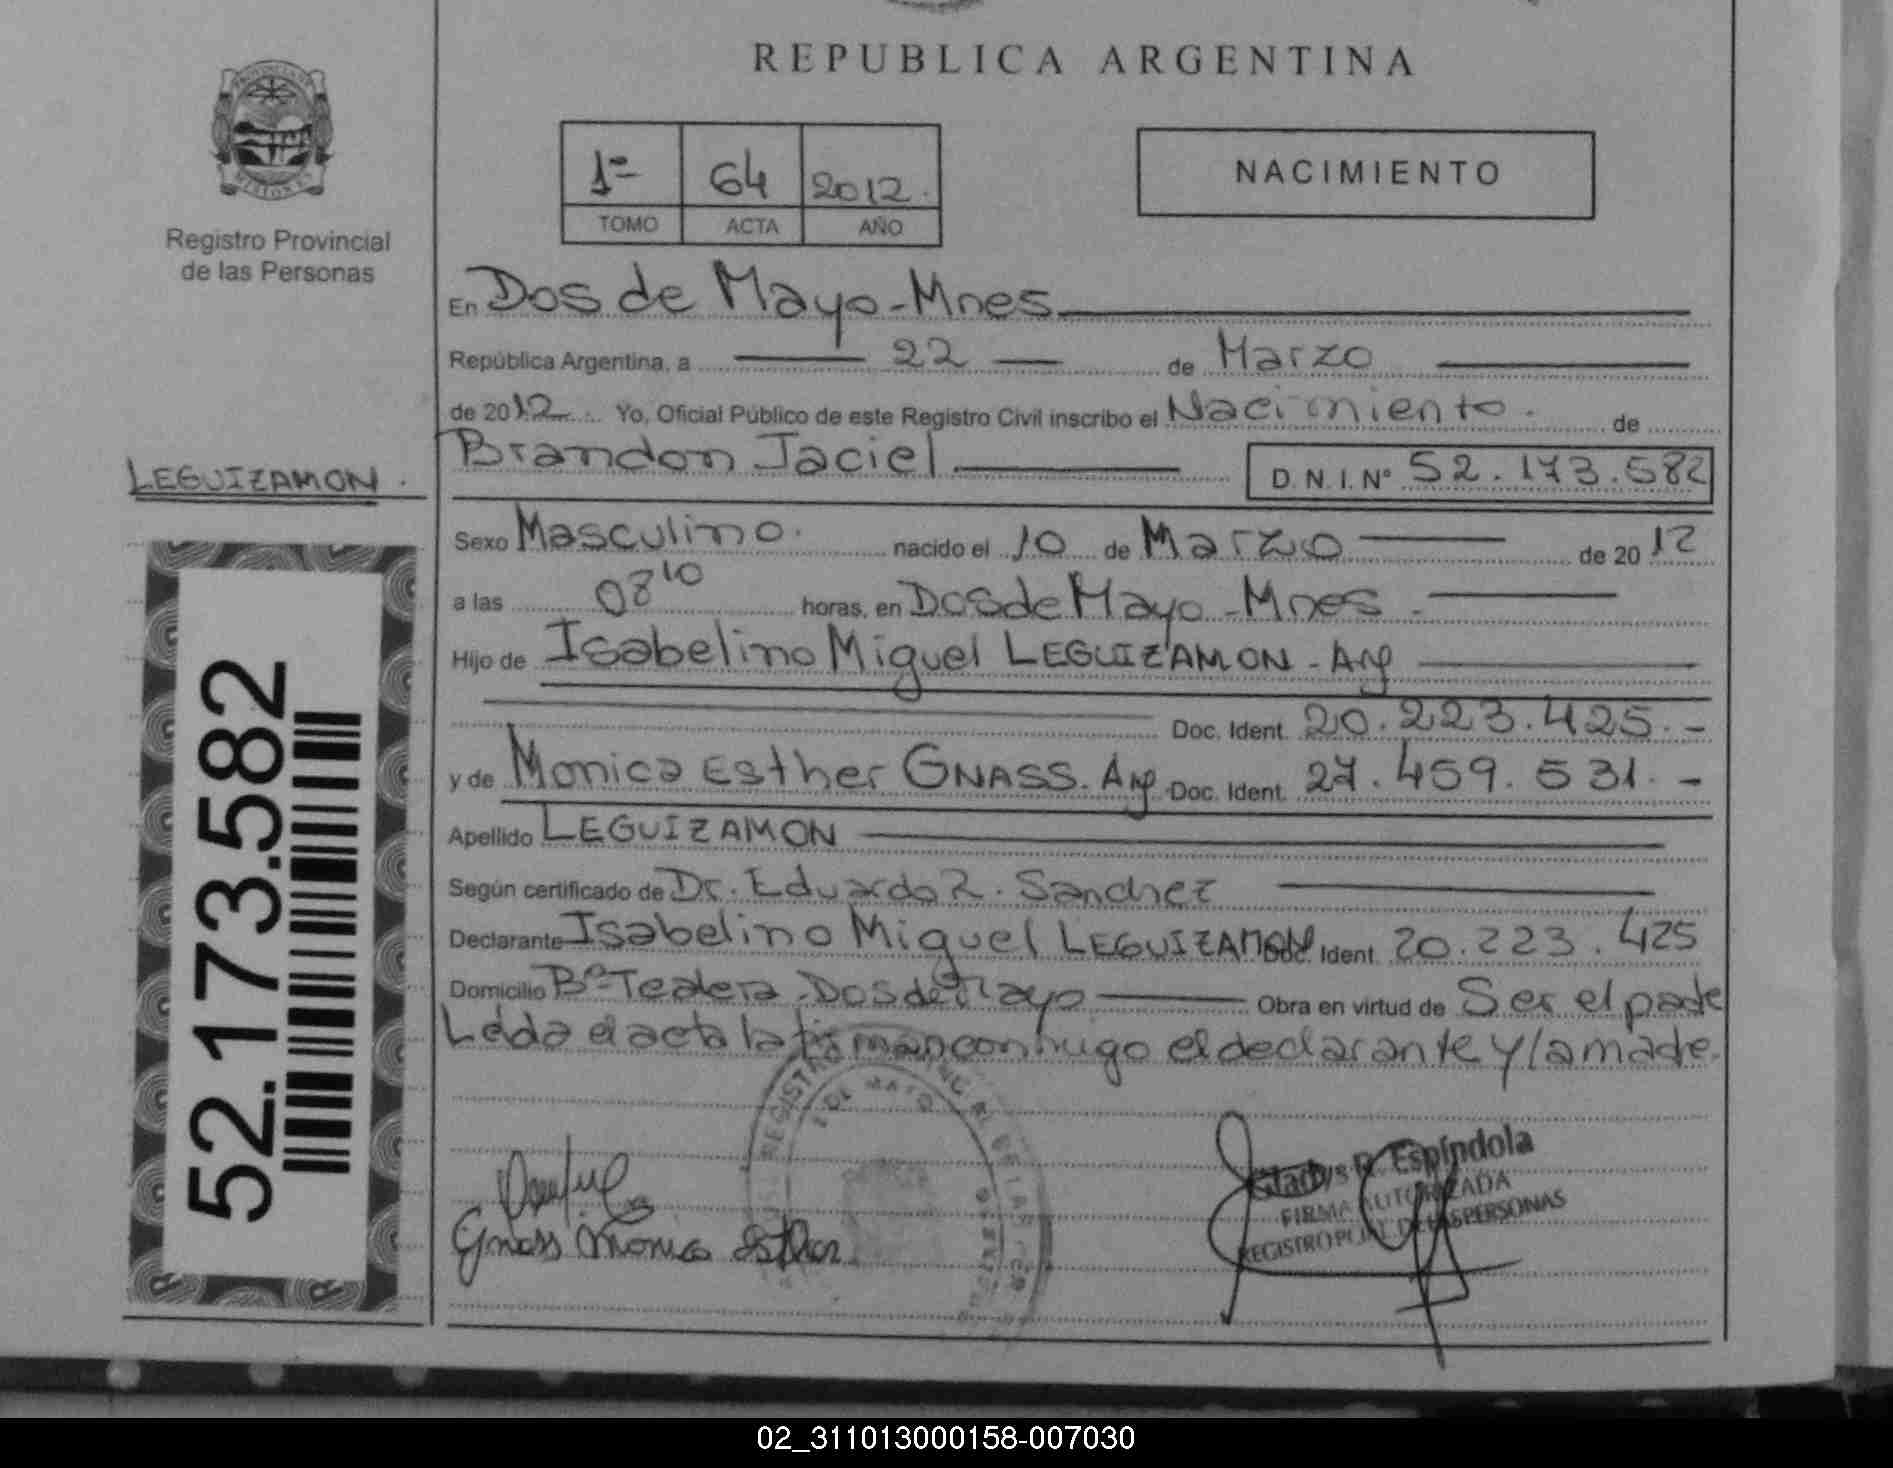 REPUBLICA ARGENTINA
PROVINCIA DE
MISIONES
Registro Provincial
de las Personas
1º 64 2012.
TOMO ACTA AÑO
NACIMIENTO
En Dos de Mayo - Mnes
República Argentina, a 22 de Marzo
de 2012 Yo, Oficial Público de este Registro Civil inscribo el Nacimiento. de
Brandon Jaciel D.N.I. Nº 52.173.582
LEGUIZAMON.
Sexo Masculino. nacido el 10 de Marzo de 2012
a las 08 10 horas, en Dos de Mayo - Mnes.
Hijo de Isabelino Miguel LEGUIZAMON - Arg
Doc. Ident. 20.223.425.-
y de Monica Esther GNASS. Arg. Doc. Ident. 27.459.531.-
Apellido LEGUIZAMON
Según certificado de Dr. Eduardo R. Sanchez
Declarante Isabelino Miguel LEGUIZAMON Doc. Ident. 20.223.425
Domicilio Bº Tealera - Dos de Mayo Obra en virtud de Ser el padre
Leída el acta la firman conmigo el declarante y la madre.
52.173.582
2 DE MAYO
Gnass Monica Esther
Gladys R. Espíndola
FIRMA AUTORIZADA
REGISTRO PCIAL. DE LAS PERSONAS
02_311013000158-007030